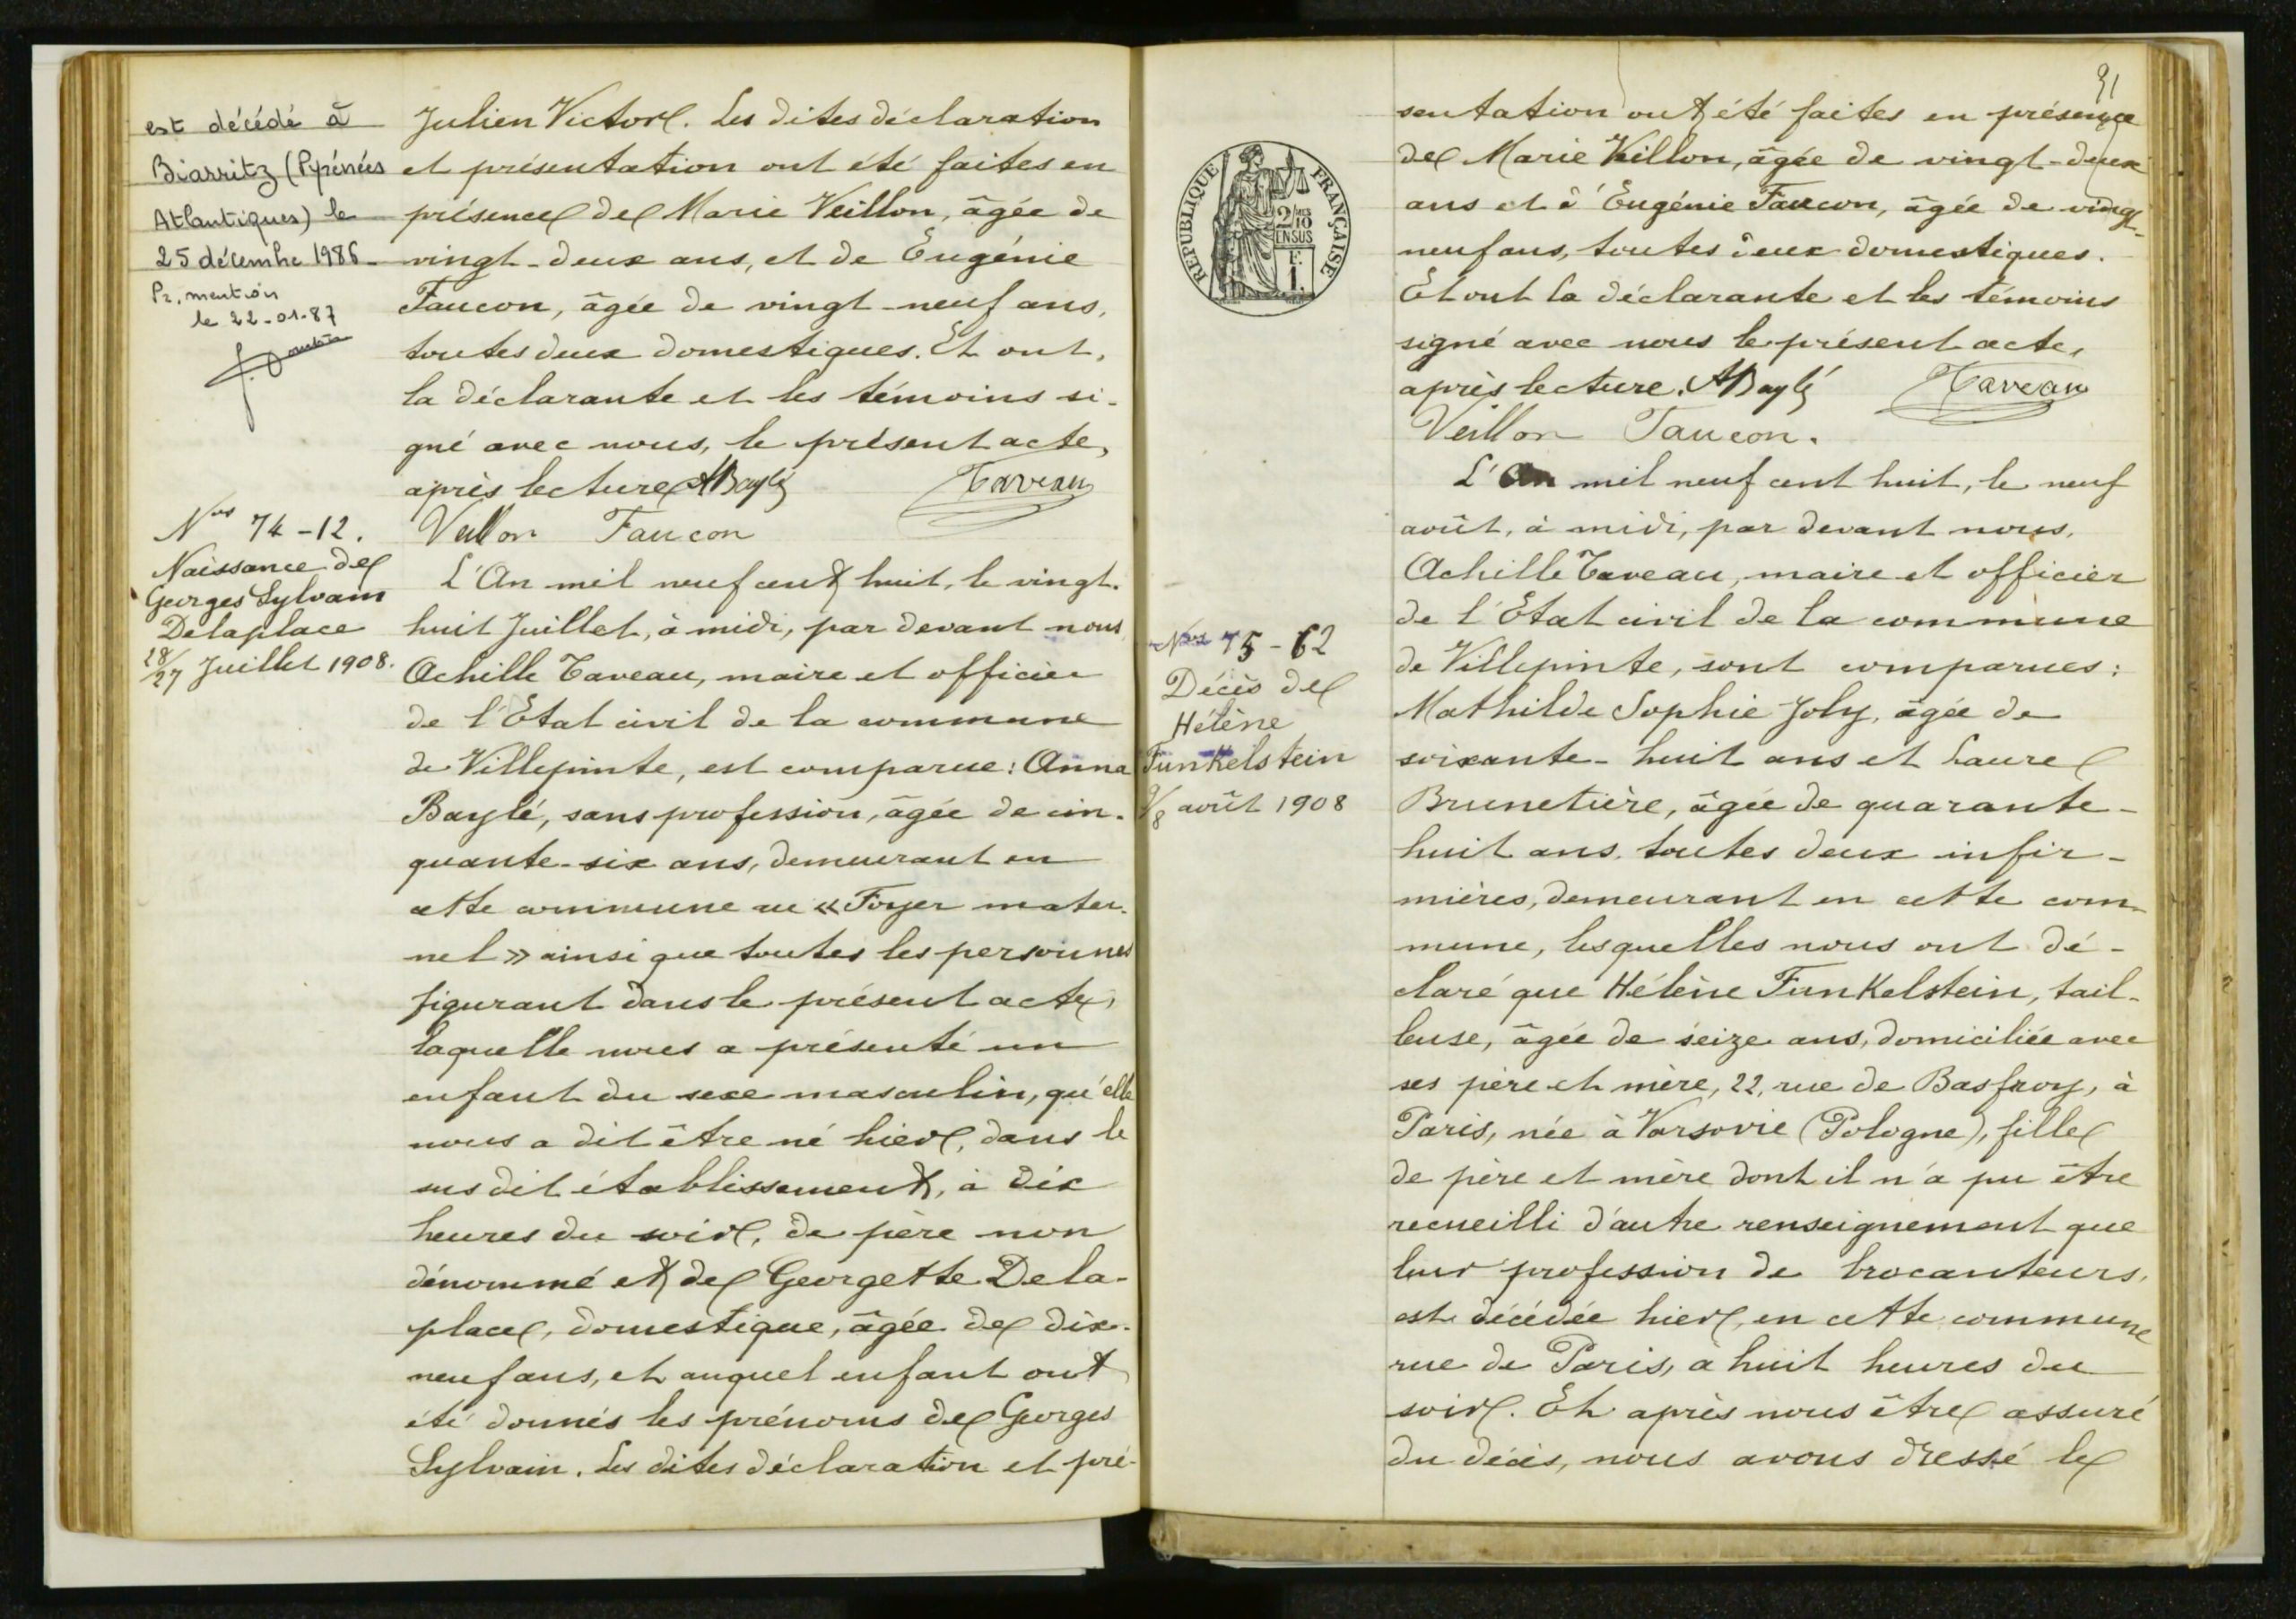 est décédé à
Biarritz (Pyrénées
Atlantiques) le
25 décembre 1986_
Pr. mention
le 22-01-87
Julien Victor. Les dites déclaration
et présentation ont été faites en
présence de Marie Veillon, âgée de
vingt-deux ans, et de Eugénie
Faucon, âgée de vingt-neuf ans,
toutes deux domestiques. Et ont,
la déclarante et les témoins si-
gné avec nous, le présent acte,
après lecture ABaylé Taveau
Veillon Faucon
Nos 74-12.
Naissance de
Georges Sylvain
Delaplace
28/27 Juillet 1908.
L'An mil neuf cent huit, le vingt-
huit Juillet, à midi, par devant nous
Achille Taveau, maire et officier
de l'Etat civil de la commune
de Villepinte, est comparue : Anna
Baylé, sans profession, âgée de cin-
quante-six ans, demeurant en
cette commune au « Foyer mater-
nel » ainsi que toutes les personnes
figurant dans le présent acte,
laquelle nous a présenté un
enfant du sexe masculin, qu'elle
nous a dit être né hier, dans le
susdit établissement, à dix
heures du soir, de père non
dénommé et de Georgette Dela-
place, domestique, âgée de dix-
neuf ans, et auquel enfant ont
été donnés les prénoms de Georges
Sylvain. Les dites déclaration et pré-
91
RÉPUBLIQUE FRANÇAISE
2/10 EN SUS
1 F.
sentation ont été faites en présence
de Marie Veillon, âgée de vingt-deux
ans et d'Eugénie Faucon, âgée de vingt-
neuf ans, toutes deux domestiques.
Et ont la déclarante et les témoins
signé avec nous le présent acte,
après lecture. ABaylé Taveau
Veillon Faucon.
Nos 75-62
Décès de
Hélène
Funkelstein
9/8 août 1908
L'An mil neuf cent huit, le neuf
août, à midi, par devant nous,
Achille Taveau, maire et officier
de l'Etat civil de la commune
de Villepinte, sont comparues :
Mathilde Sophie Joly, âgée de
soixante-huit ans et Laure
Brunetière, âgée de quarante-
huit ans, toutes deux infir-
mières, demeurant en cette com-
mune, lesquelles nous ont dé-
claré que Hélène Funkelstein, tail-
leuse, âgée de seize ans, domiciliée avec
ses père et mère, 22, rue de Basfroy, à
Paris, née à Varsovie (Pologne), fille
de père et mère dont il n'a pu être
recueilli d'autre renseignement que
leur profession de brocanteurs,
est décédée hier, en cette commune
rue de Paris, à huit heures du
soir. Et après nous être assuré
du décès, nous avons dressé le